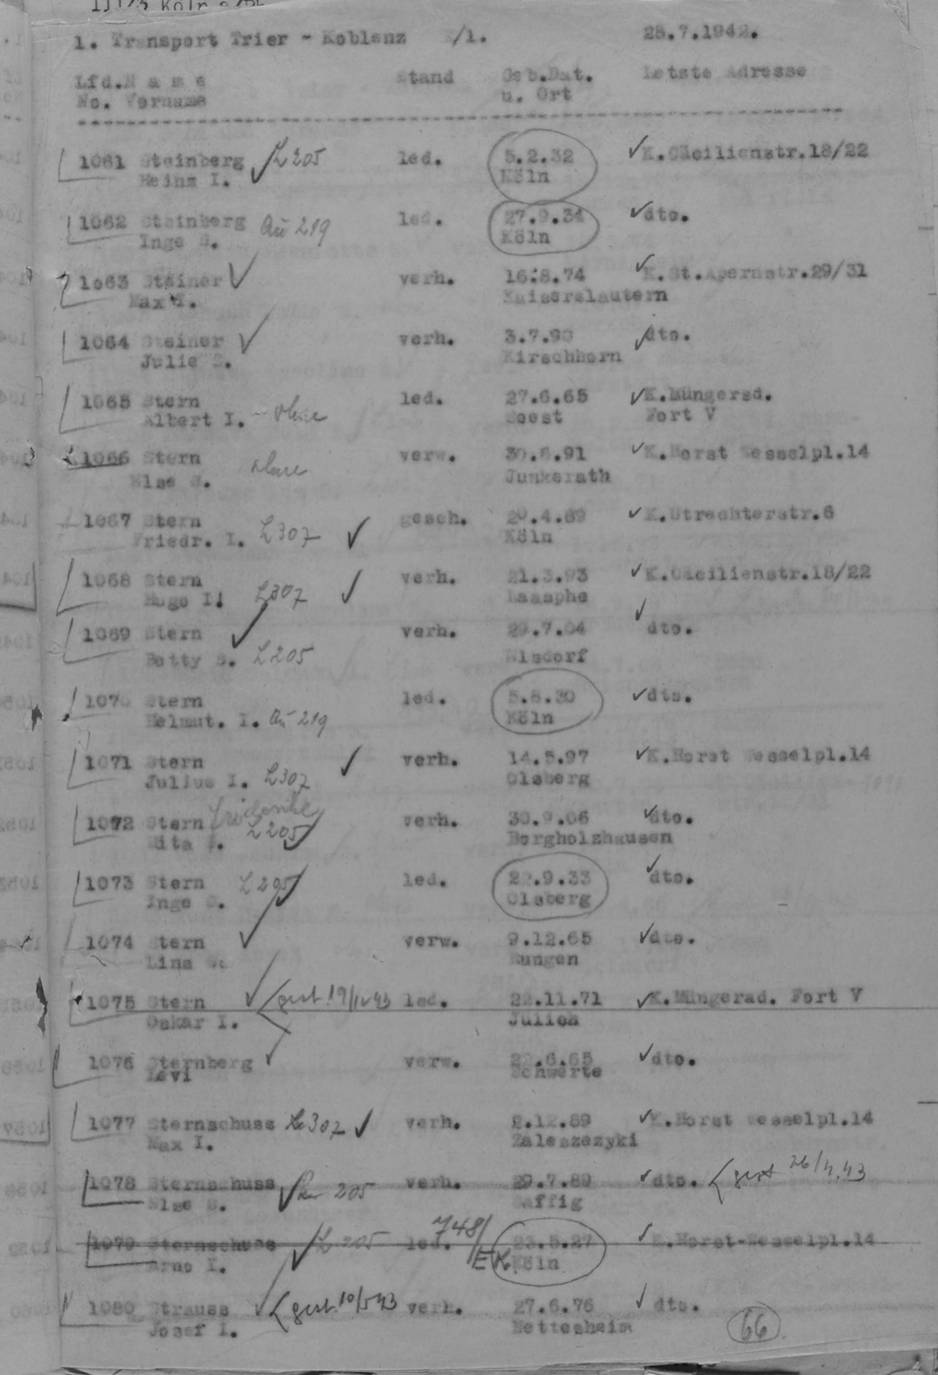 1. Transport Trier - Koblenz /1. 25.7.1942.
Lfd.N a m e Stand Geb.Dat. Letzte Adresse
No. Vorname u. Ort
1061 Steinberg L 205 led. 5.2.32 K.Cäcilienstr.18/22
Heinz I. Köln
1062 Steinberg Au 219 led. 27.9.34 dto.
Inge S. Köln
1063 Steiner verh. 16.8.74 K.St.Apernstr.29/31
Max I. Kaiserslautern
1064 Steiner verh. 3.7.90 dto.
Julie S. Kirschhorn
1065 Stern led. 27.6.65 K.Müngersd.
Albert I. - ohne Soest Fort V
1066 Stern verw. 30.8.91 K.Horst Wesselpl.14
Else S. ohne Junkerath
1067 Stern gesch. 20.4.89 K.Utrechterstr.6
Friedr. I. L307 Köln
1068 Stern verh. 21.3.93 K.Cäcilienstr.18/22
Hugo I. L307 Laasphe
1069 Stern verh. 29.7.04 dto.
Betty S. L205 Elsdorf
1070 Stern led. 5.8.30 dto.
Helmut. I. Au 219 Köln
1071 Stern verh. 14.5.97 K.Horst Wesselpl.14
Julius I. L307 Olsberg
1072 Stern verh. 30.9.06 dto.
Rita S. L205 Borgholzhausen
1073 Stern L 205 led. 22.9.33 dto.
Inge S. Olsberg
1074 Stern verw. 9.12.65 dto.
Lina S. Hungen
1075 Stern gest. 19/IV 43 led. 22.11.71 K.Müngersd. Fort V
Oskar I. Jülich
1076 Sternberg verw. 22.6.65 dto.
Levi Schwerte
1077 Sternschuss L307 verh. 2.12.89 K.Horst Wesselpl.14
Max I. Zaleszczyki
1078 Sternschuss 205 verh. 29.7.89 dto. gest 26/4.43
Else S. Saffig
1079 Sternschuss L 205 led. 748/ 23.5.27 K.Horst-Wesselpl.14
Arno I. EK Köln
1080 Strauss gest. 10/5 43 verh. 27.6.76 dto.
Josef I. Nettesheim
66